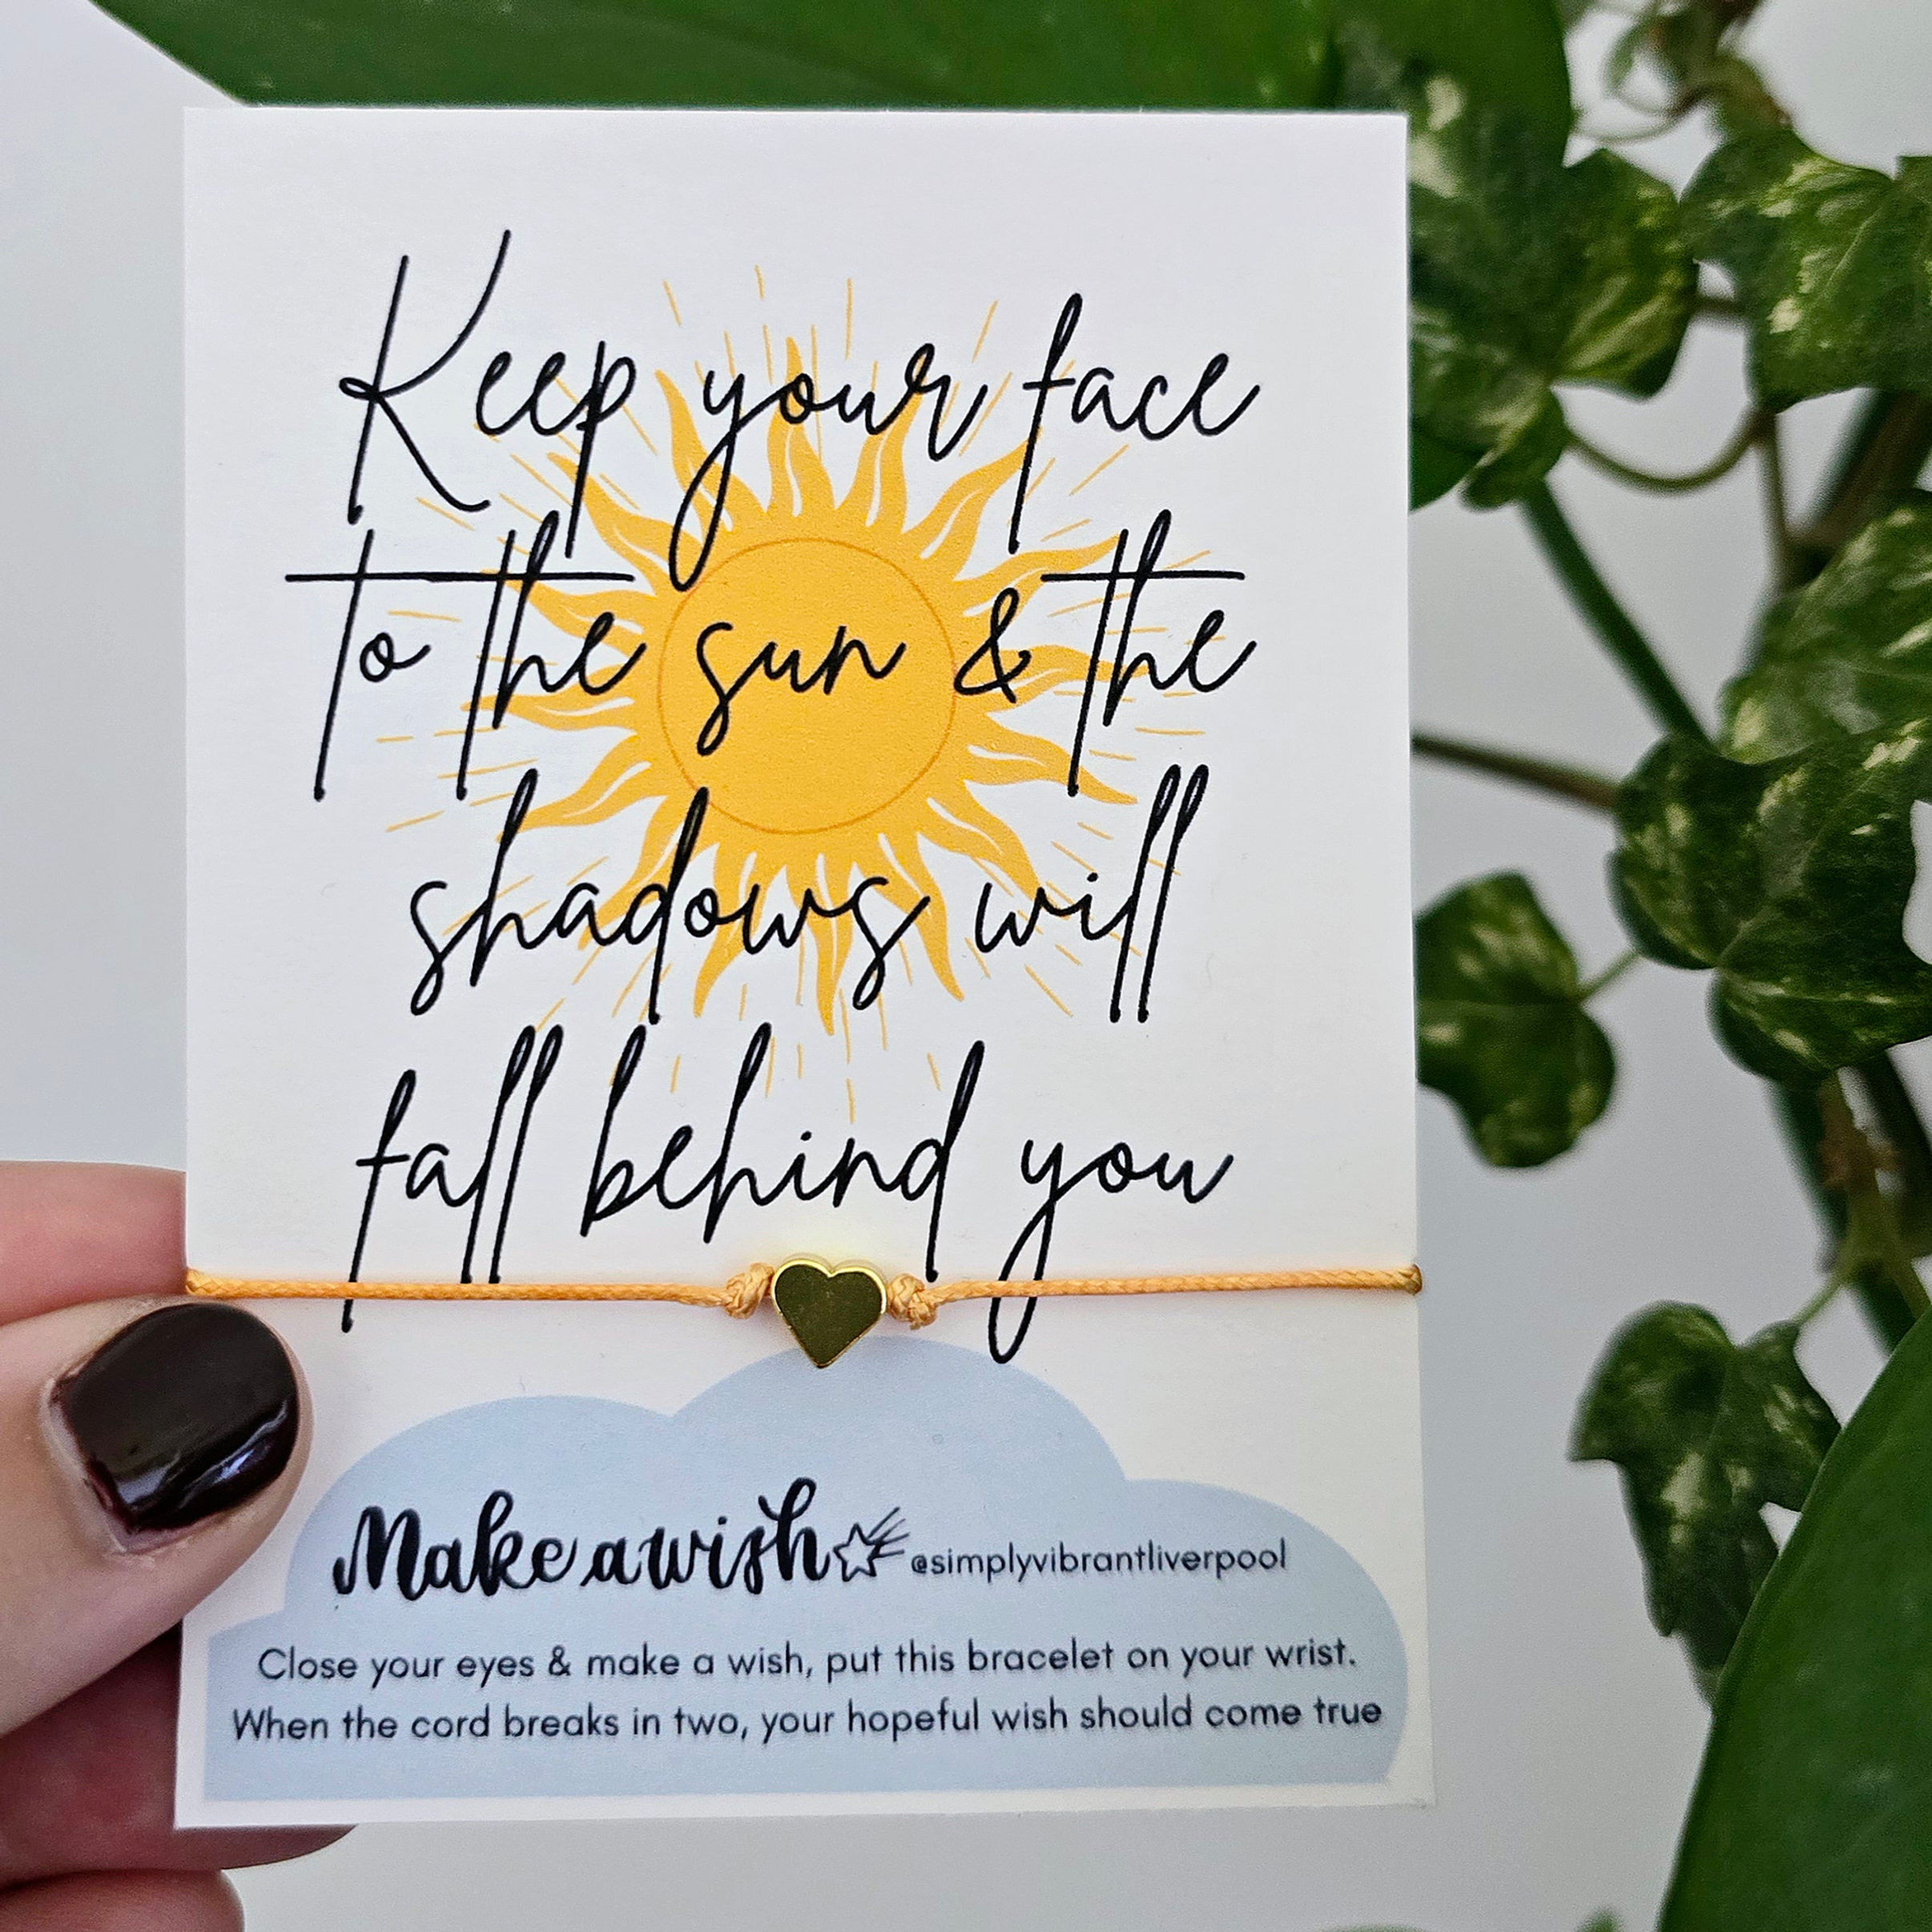 Keep your face
to the sun & the
shadows will
fall behind you
Make a wish @simplyvibrantliverpool
Close your eyes & make a wish, put this bracelet on your wrist.
When the cord breaks in two, your hopeful wish should come true